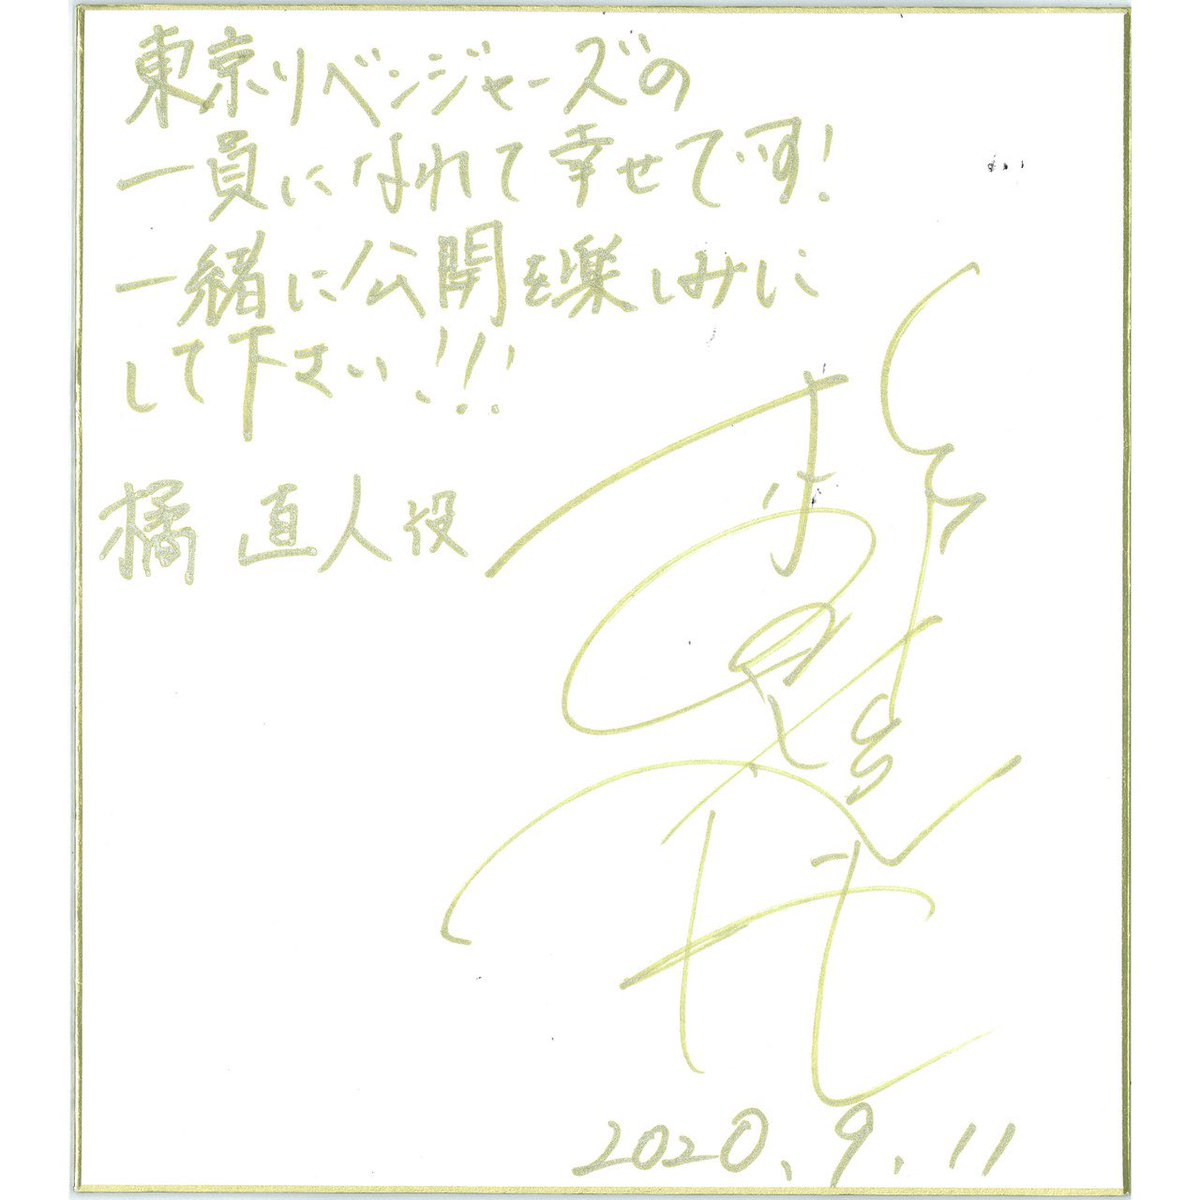 東京リベンジャーズの
一員になれて幸せです!
一緒に公開を楽しみに
して下さい!!!
橘 直人役
2020.9.11